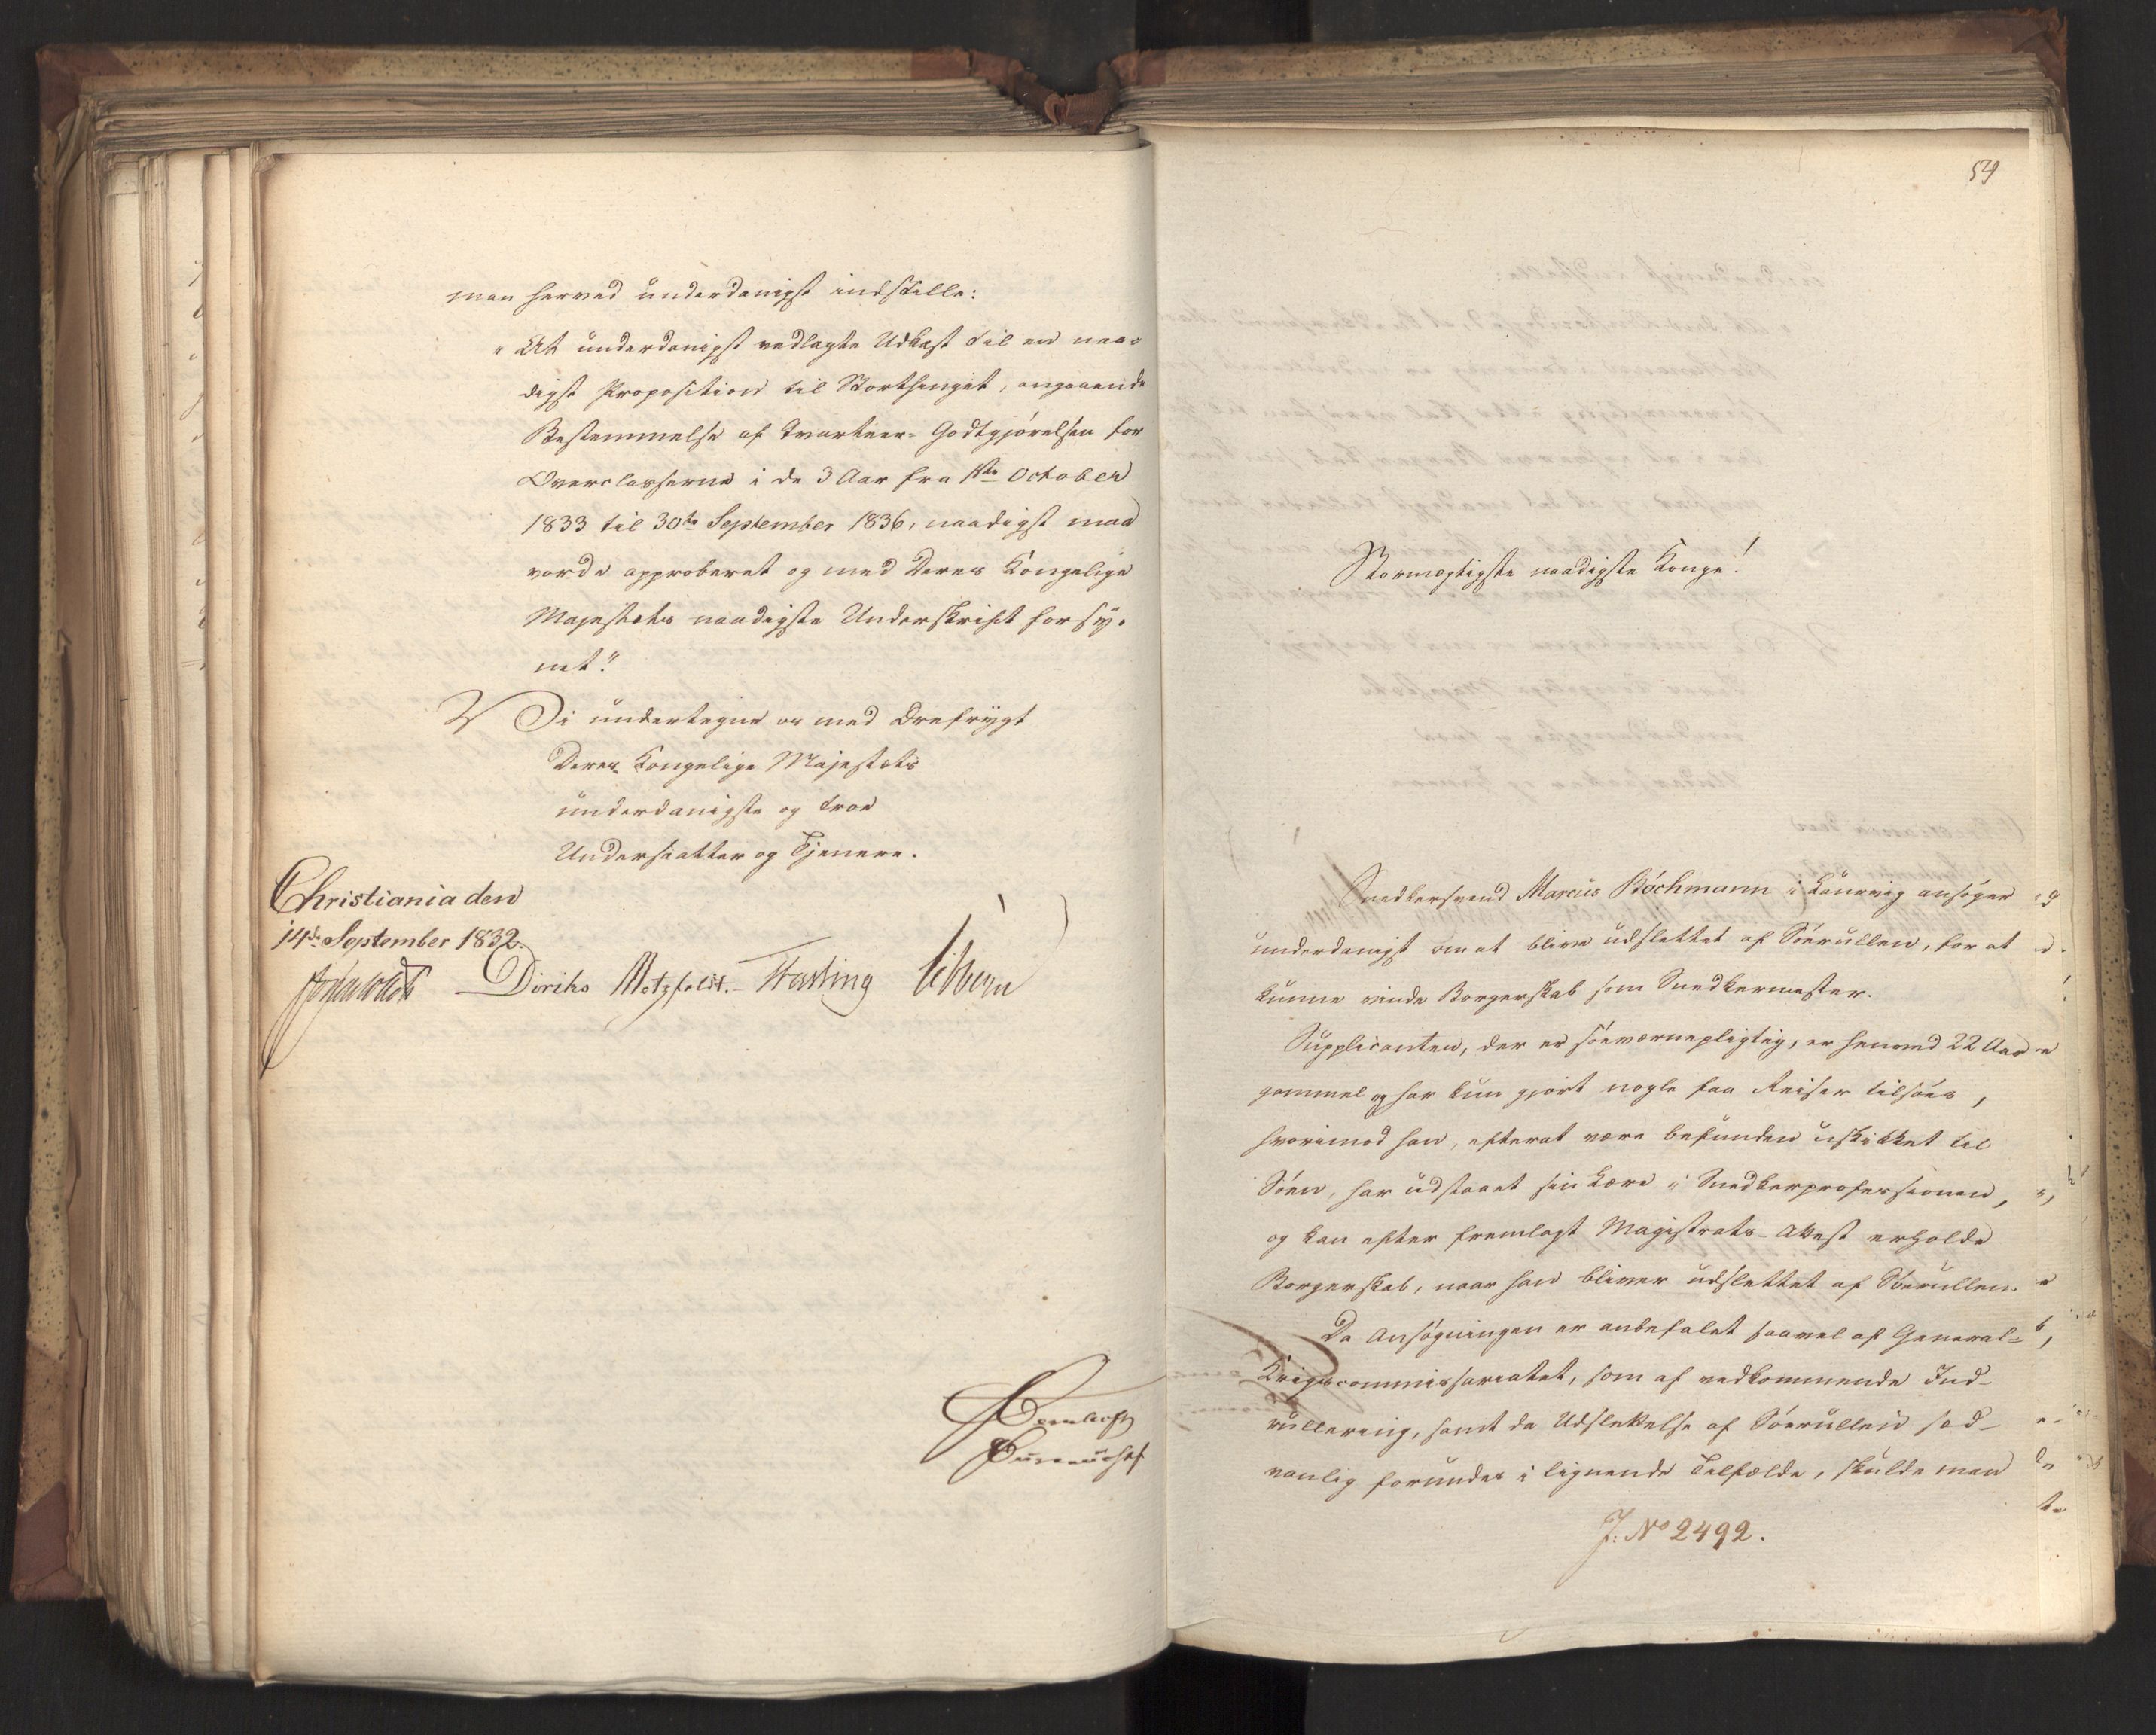 man herved underdanigst indstille:
"At underdanigst vedlagte Udkast til en naa-
digst Proposition til Storthinget, angaaende
Bestemmelse af Qvarteer-Godtgjörelsen for
Overclasserne i de 3 Aar fra 1ste October
1833 til 30te September 1836, naadigst maa
vorde approberet og med Deres Kongelige
Majestæts naadigste Underskrift forsy-
net."
Vi undertegne os med Ærefrygt
Deres Kongelige Majestæts
underdanigste og troe
Undersaatter og Tjenere.
Christiania den
14de September 1832.
Diriks Motzfeldt. Fasting Sibbern
54
Stormægtigste naadigste Konge!
Snedkersvend Marcus Böchmann i Laurvig ansöger
underdanigst om at blive udslettet af Söerullen, for at
kunne vinde Borgerskab som Snedkermester.
Supplicanten, der er söeværnepligtig, er henved 22 Aar
gammel og har kun gjort nogle faa Reiser tilsöes,
hvorimod han, efterat være befunden uskikket til
Söen, har udstaaet sin Lære i Snedkerprofessionen,
og kan efter fremlagt Magistrats-Attest erholde
Borgerskab, naar han bliver udslettet af Söerullen.
Da Ansögningen er anbefalet saavel af General-
Krigscommissariatet, som af vedkommende Ind-
rullering, samt da Udslettelse af Söerullen sæd-
vanlig forundes i lignende Tilfælde, skulde man
J: No 2492.